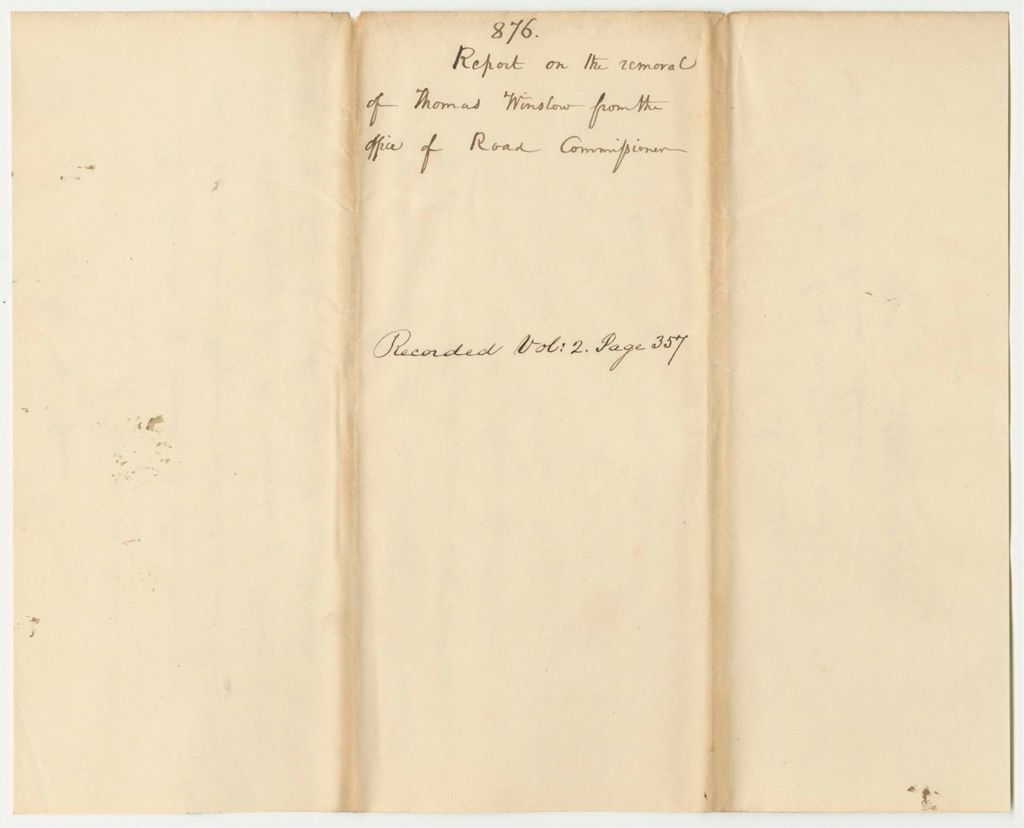 876.
Report on the removal
of Thomas Winslow from the
office of Road Commissioner
Recorded Vol: 2. Page 357